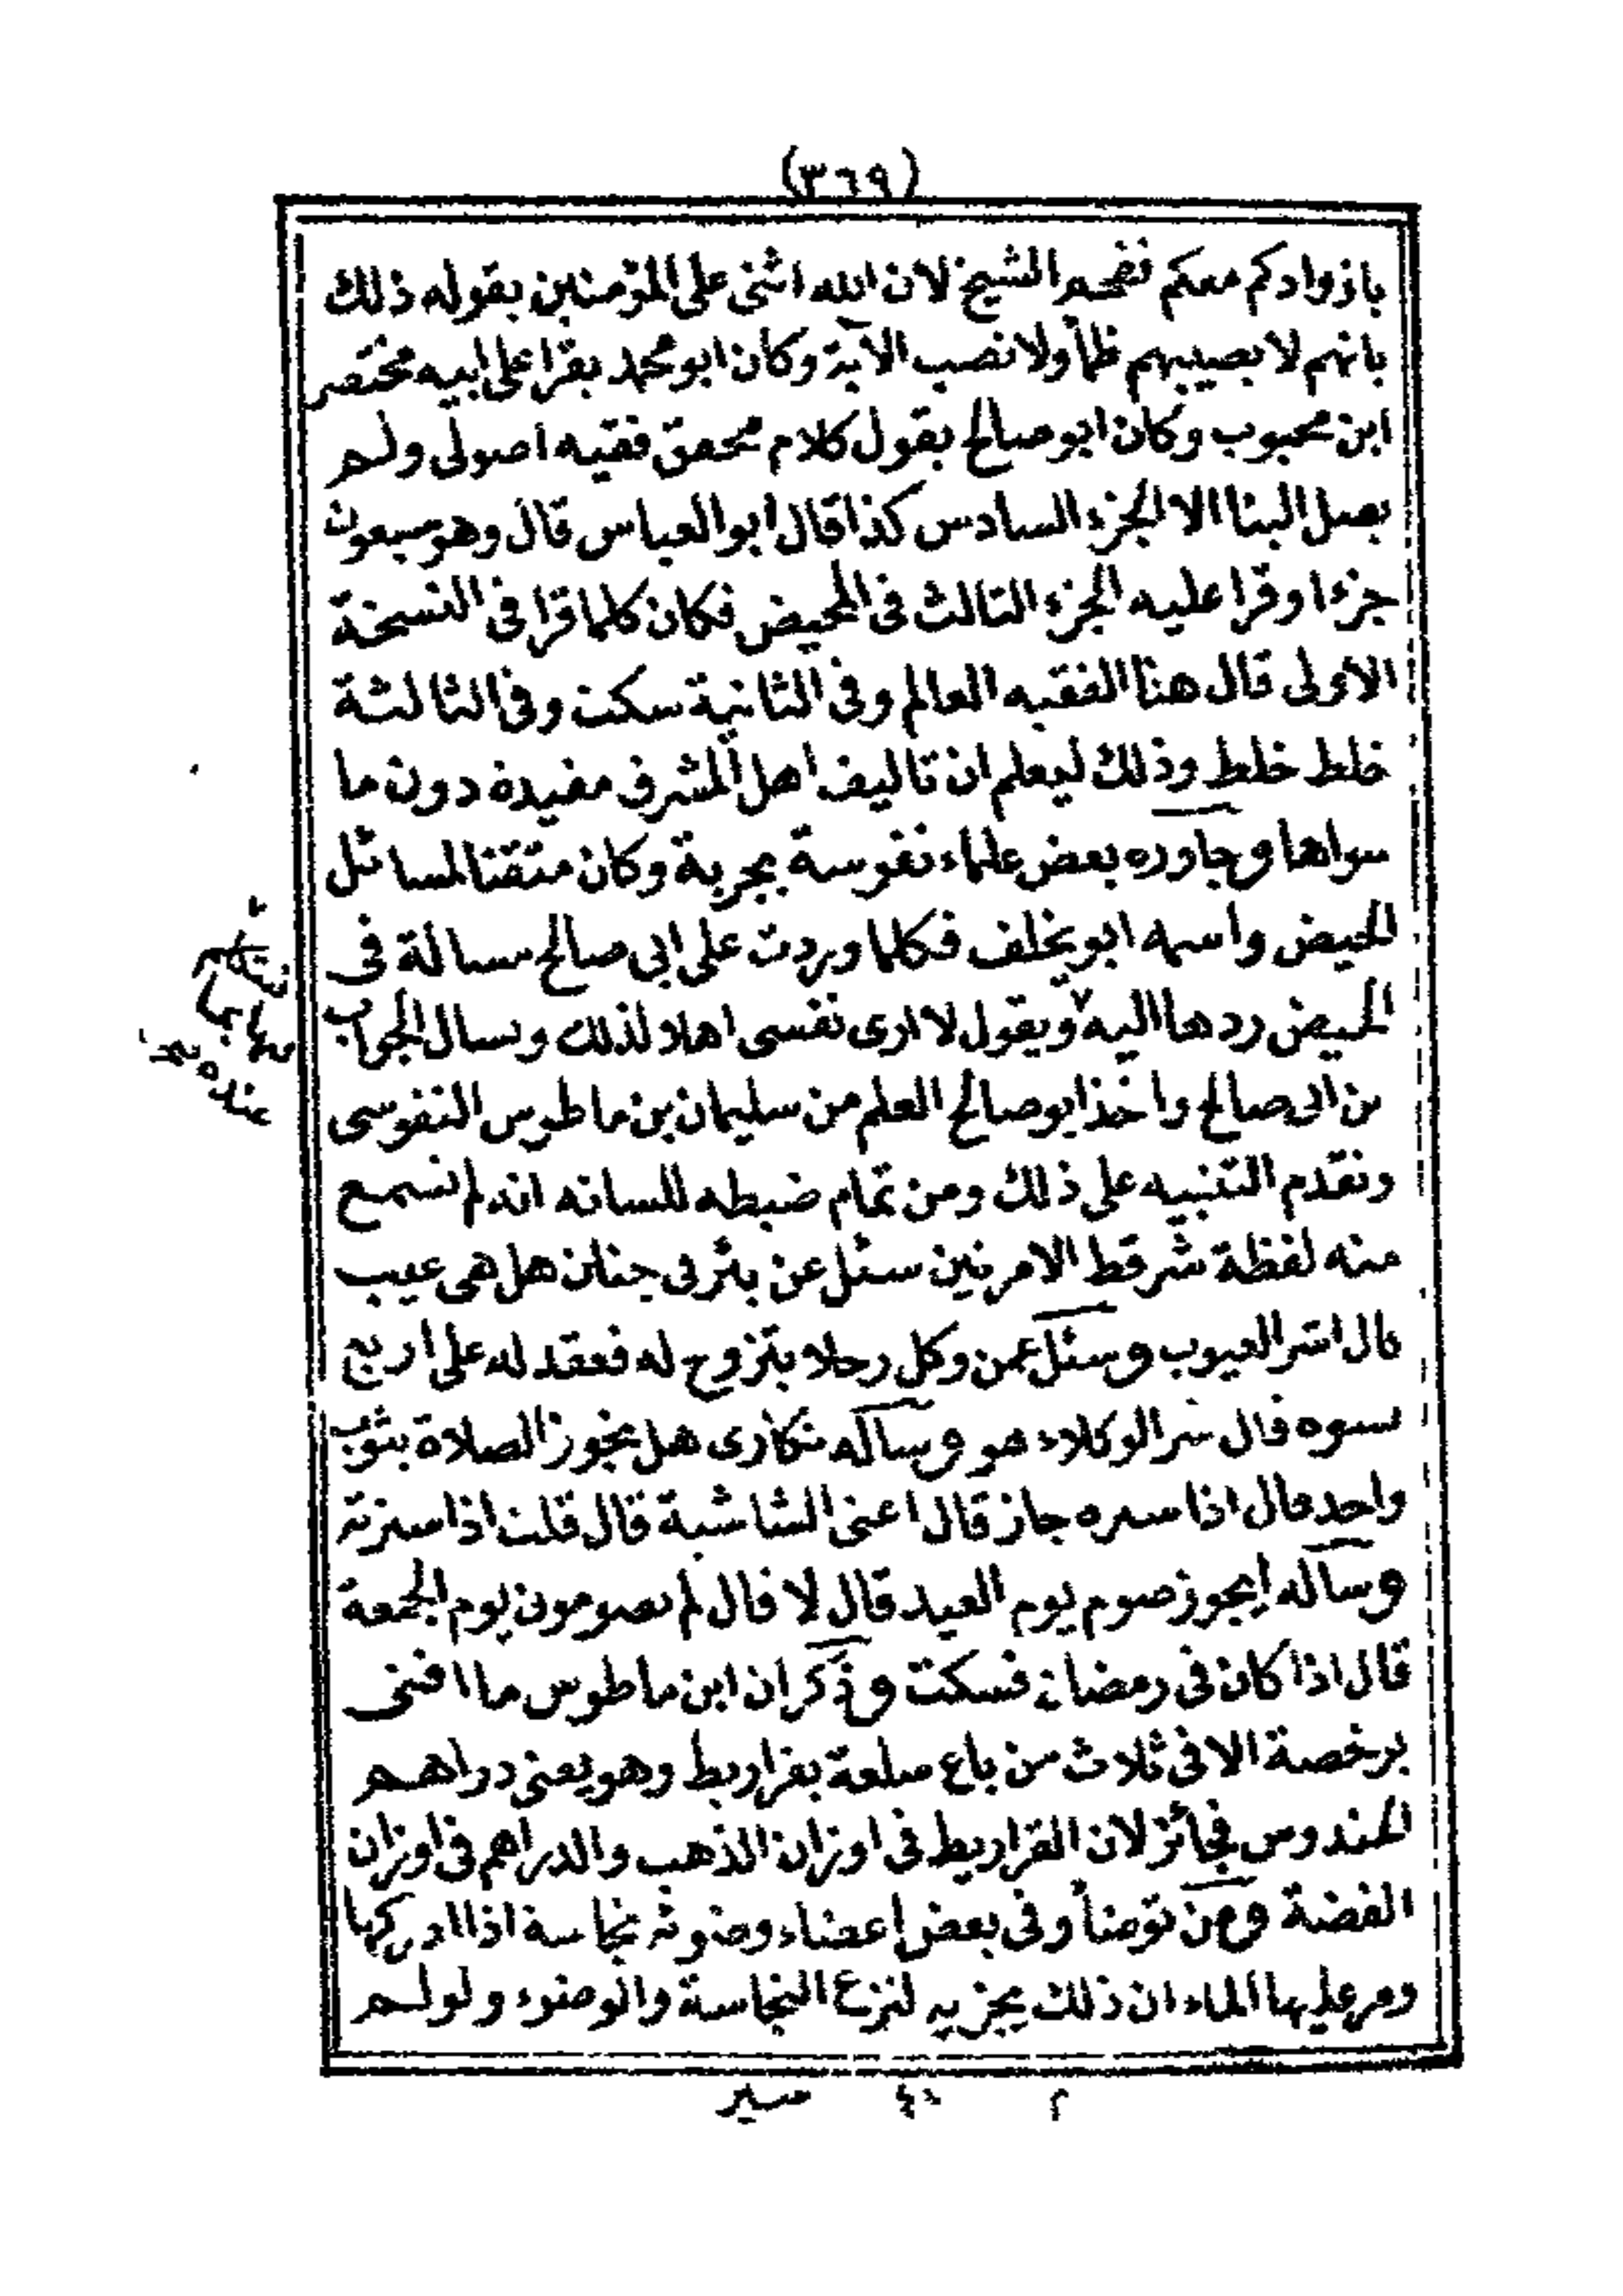 (٣٦٩)
بازوادكم معكم ففحم الشيخ لان الله اثنى على المؤمنين بقوله ذلك
بانهم لا يصيبهم ظمأ ولا نصب الآية وكان ابو محمد يقرا على ابيه مختصر
ابن محبوب وكان ابو صالح يقول كلام محقق فقيه اصولى ولم
يصل الينا الا الجزء السادس كذا قال ابو العباس قال وهو سبعون
جزءا وقرا عليه الجزء الثالث فى المحيض فكان كلما قرا فى النسخة
الاولى قال هنا الفقيه العالم وفى الثانية سكت وفى الثالثة
خلط خلط وذلك ليعلم ان تاليف اهل المشرق مفيدة دون ما
سواها وجاوره بعض علماء نفوسة بجربة وكان متقنا لمسائل
الحيض واسمه ابو يخلف فكلما وردت على ابى صالح مسالة فى
الحيض ردها اليه ويقول لا ارى نفسى اهلا لذلك وسال الجواب
من ابى صالح واخذ ابو صالح العلم من سليمان بن ماطوس النفوسى
وتقدم التنبيه على ذلك ومن تمام ضبطه للسانه انه لم تسمع
منه لفظة شر قط الا مرتين سئل عن بئر فى جنان هل هى عيب
قال اشر العيوب وسئل عمن وكل رجلا يتزوج له فعقد له على اربع
نسوة قال شر الوكلاء هو وساله نكارى هل تجوز الصلاة بثوب
واحد قال اذا ستره جاز قال اعنى الشاشية قال قلت اذا سترته
وساله ايجوز صوم يوم العيد قال لا قال لم تصومون يوم الجمعة
قال اذا كان فى رمضان فسكت وذكر ان ابن ماطوس ما افتى
برخصة الا فى ثلاث من باع سلعة بقراريط وهو يعنى دراهم
الهندوس فجائز لان القراريط فى اوزان الذهب والدراهم فى اوزان
الفضة ومن توضأ وفى بعض اعضاء وضوئه نجاسة اذا ادركها
ومر عليها الماء ان ذلك يجزيه لنزع النجاسة والوضوء ولو لم
م ٤٠ سير